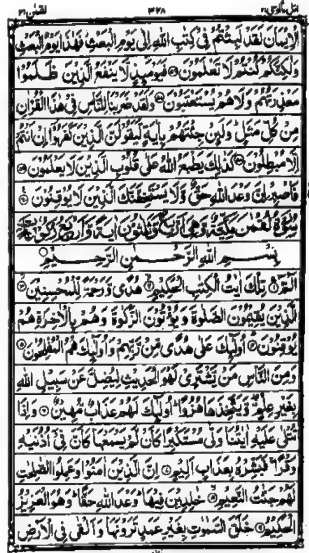 لقمٰن ٣١ ٣٢٨ اتل مآ اوحی ٢١
الْاِیْمَانَ لَقَدْ لَبِثْتُمْ فِیْ كِتٰبِ اللّٰهِ اِلٰی یَوْمِ الْبَعْثِ فَهٰذَا یَوْمُ الْبَعْثِ
وَلٰكِنَّكُمْ كُنْتُمْ لَا تَعْلَمُوْنَ فَیَوْمَىِٕذٍ لَّا یَنْفَعُ الَّذِیْنَ ظَلَمُوْا
مَعْذِرَتُهُمْ وَلَا هُمْ یُسْتَعْتَبُوْنَ وَلَقَدْ ضَرَبْنَا لِلنَّاسِ فِیْ هٰذَا الْقُرْاٰنِ
مِنْ كُلِّ مَثَلٍ وَلَىِٕنْ جِئْتَهُمْ بِاٰیَةٍ لَّیَقُوْلَنَّ الَّذِیْنَ كَفَرُوْۤا اِنْ اَنْتُمْ
اِلَّا مُبْطِلُوْنَ كَذٰلِكَ یَطْبَعُ اللّٰهُ عَلٰی قُلُوْبِ الَّذِیْنَ لَا یَعْلَمُوْنَ
فَاصْبِرْ اِنَّ وَعْدَ اللّٰهِ حَقٌّ وَّلَا یَسْتَخِفَّنَّكَ الَّذِیْنَ لَا یُوْقِنُوْنَ
سُوْرَةُ لُقْمٰنَ مَكِّیَّةٌ وَّهِیَ اَرْبَعٌ وَّثَلٰثُوْنَ اٰیَةً وَّاَرْبَعُ رُكُوْعَاتٍ
بِسْمِ اللّٰهِ الرَّحْمٰنِ الرَّحِیْمِ
الٓمّٓ تِلْكَ اٰیٰتُ الْكِتٰبِ الْحَكِیْمِ هُدًی وَّرَحْمَةً لِّلْمُحْسِنِیْنَ
الَّذِیْنَ یُقِیْمُوْنَ الصَّلٰوةَ وَیُؤْتُوْنَ الزَّكٰوةَ وَهُمْ بِالْاٰخِرَةِ هُمْ
یُوْقِنُوْنَ اُولٰٓىِٕكَ عَلٰی هُدًی مِّنْ رَّبِّهِمْ وَاُولٰٓىِٕكَ هُمُ الْمُفْلِحُوْنَ
وَمِنَ النَّاسِ مَنْ یَّشْتَرِیْ لَهْوَ الْحَدِیْثِ لِیُضِلَّ عَنْ سَبِیْلِ اللّٰهِ
بِغَیْرِ عِلْمٍ وَّیَتَّخِذَهَا هُزُوًا اُولٰٓىِٕكَ لَهُمْ عَذَابٌ مُّهِیْنٌ وَاِذَا
تُتْلٰی عَلَیْهِ اٰیٰتُنَا وَلّٰی مُسْتَكْبِرًا كَاَنْ لَّمْ یَسْمَعْهَا كَاَنَّ فِیْۤ اُذُنَیْهِ
وَقْرًا فَبَشِّرْهُ بِعَذَابٍ اَلِیْمٍ اِنَّ الَّذِیْنَ اٰمَنُوْا وَعَمِلُوا الصّٰلِحٰتِ
لَهُمْ جَنّٰتُ النَّعِیْمِ خٰلِدِیْنَ فِیْهَا وَعْدَ اللّٰهِ حَقًّا وَهُوَ الْعَزِیْزُ
الْحَكِیْمُ خَلَقَ السَّمٰوٰتِ بِغَیْرِ عَمَدٍ تَرَوْنَهَا وَاَلْقٰی فِی الْاَرْضِ